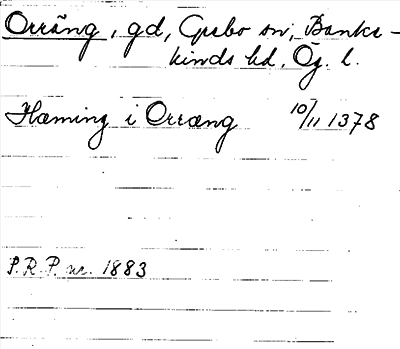 Orräng, gd, Grebo sn, Banke-
kinds hd, Ög. l.
Hæming i Orræng 10/11 1378
S.R.P. nr. 1883